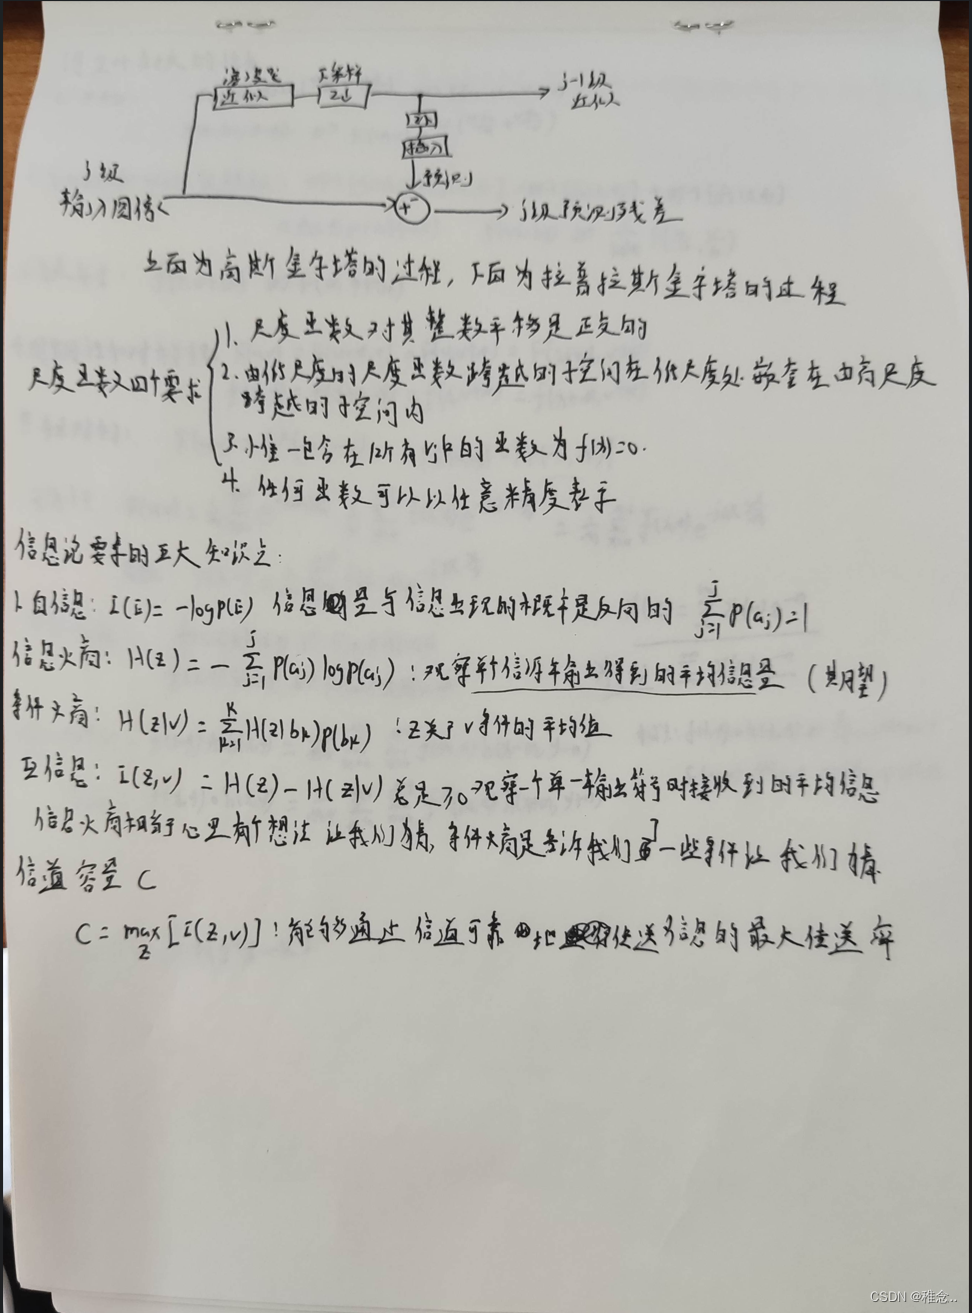 滤波器 下采样
近似 2↓ j-1级
近似
2↑
插入
j级 预测
输入图像 + - j级预测残差
上面为高斯金字塔的过程，下面为拉普拉斯金字塔的过程
1. 尺度函数对其整数平移是正交的
尺度函数四个要求 2. 由低尺度的尺度函数跨越的子空间在低尺度处嵌套在由高尺度
跨越的子空间内
3. 唯一包含在所有Vj中的函数为f(x)=0.
4. 任何函数可以以任意精度表示
信息论要求的五大知识点:
1.自信息: I(E)= -logP(E) 信息量与信息出现的概率是反向的 \sum_{j=1}^{J} P(a_j)=1
信息火商: H(z) = - \sum_{j=1}^{J} P(a_j) log P(a_j) : 观察单个信源输出得到的平均信息量 (期望)
条件火商: H(z|v) = \sum_{k=1}^{K} H(z|b_k) p(b_k) : z关于v条件的平均值
互信息: I(z,v) = H(z) - H(z|v) 总是≥0 观察一个单一输出符号时接收到的平均信息
信息火商相当于心里有个想法 让我们猜, 条件火商是告诉我们一些条件让我们猜
信道容量 C
C = \max_z [I(z,v)] : 能够通过信道可靠地传送信息的最大传送率
CSDN @稚念..